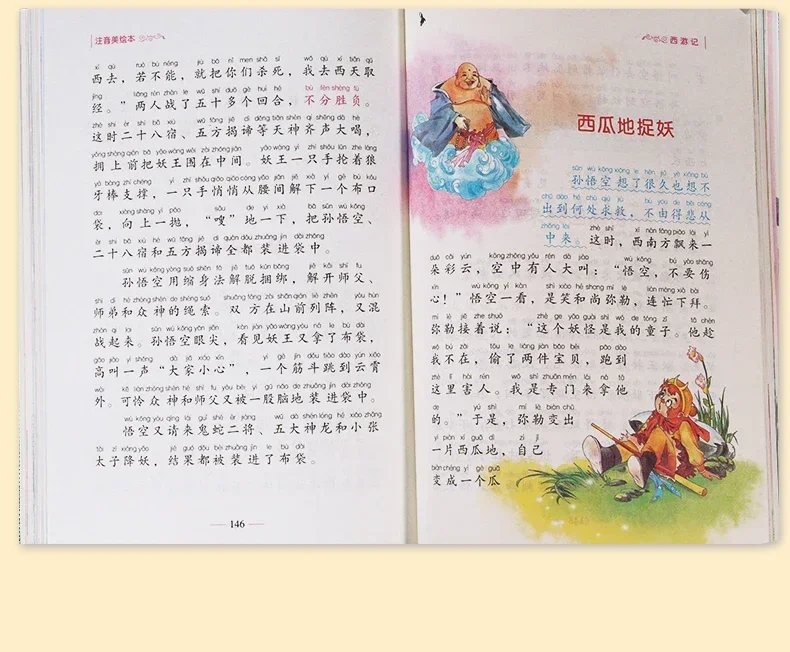 注音美绘本
西去，若不能，就把你们杀死，我去西天取
经。”两人战了五十多个回合，不分胜负。
这时二十八宿、五方揭谛等天神齐声大喝，
拥上前把妖王围在中间。妖王一只手抡着狼
牙棒支撑，一只手悄悄从腰间解下一个布口
袋，向上一抛，“嗖”地一下，把孙悟空、
二十八宿和五方揭谛全都装进袋中。
孙悟空用缩身法解脱捆绑，解开师父、
师弟和众神的绳索。双方在山前列阵，又混
战起来。孙悟空眼尖，看见妖王又拿了布袋，
高叫一声“大家小心”，一个筋斗跳到云霄
外。可怜众神和师父又被一股脑地装进袋中。
悟空又请来龟蛇二将、五大神龙和小张
太子降妖，结果都被装进了布袋。
146
西游记
西瓜地捉妖
孙悟空想了很久也想不
出到何处求救，不由得悲从
中来 这时，西南方飘来一
朵彩云，空中有人大叫：“悟空，不要伤
心！”悟空一看，是笑和尚弥勒，连忙下拜。
弥勒接着说：“这个妖怪是我的童子。他趁
我不在，偷了两件宝贝，跑到
这里害人。我是专门来拿他
的。”于是，弥勒变出
一片西瓜地，自己
变成一个瓜